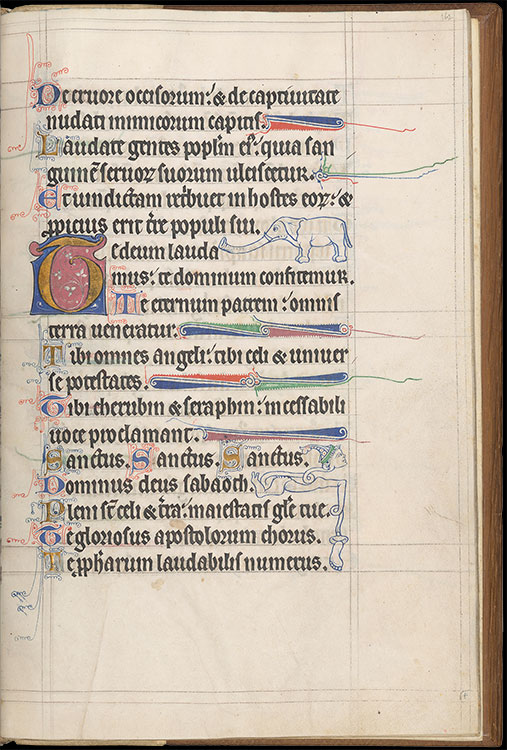 De cruore occisorum: & de captiuitate
nudati inimicorum capitis.
Laudate gentes poplm̄ eiꝰ: quia san
guinē seruoꝝ suorum ulciscetur.
Et uindictam retͥbuet in hostes eoꝝ: &
ꝓpicius erit tr̄e populi sui.
Te deum lauda
mus: te dominum confitemur.
Te eternum patrem: omnis
terra ueneratur.
Tibi omnes angeli: tibi celi & uniuer
se potestates.
Tibi cherubin & seraphin: incessabili
uoce proclamant.
Sanctus. Sanctus. Sanctus.
Dominus deus sabaoth.
Pleni st̄ celi & tr̄a: maiestatis gl̄e tue.
Te gloriosus apostolorum chorus.
Te ꝓph̄arum laudabilis numerus.